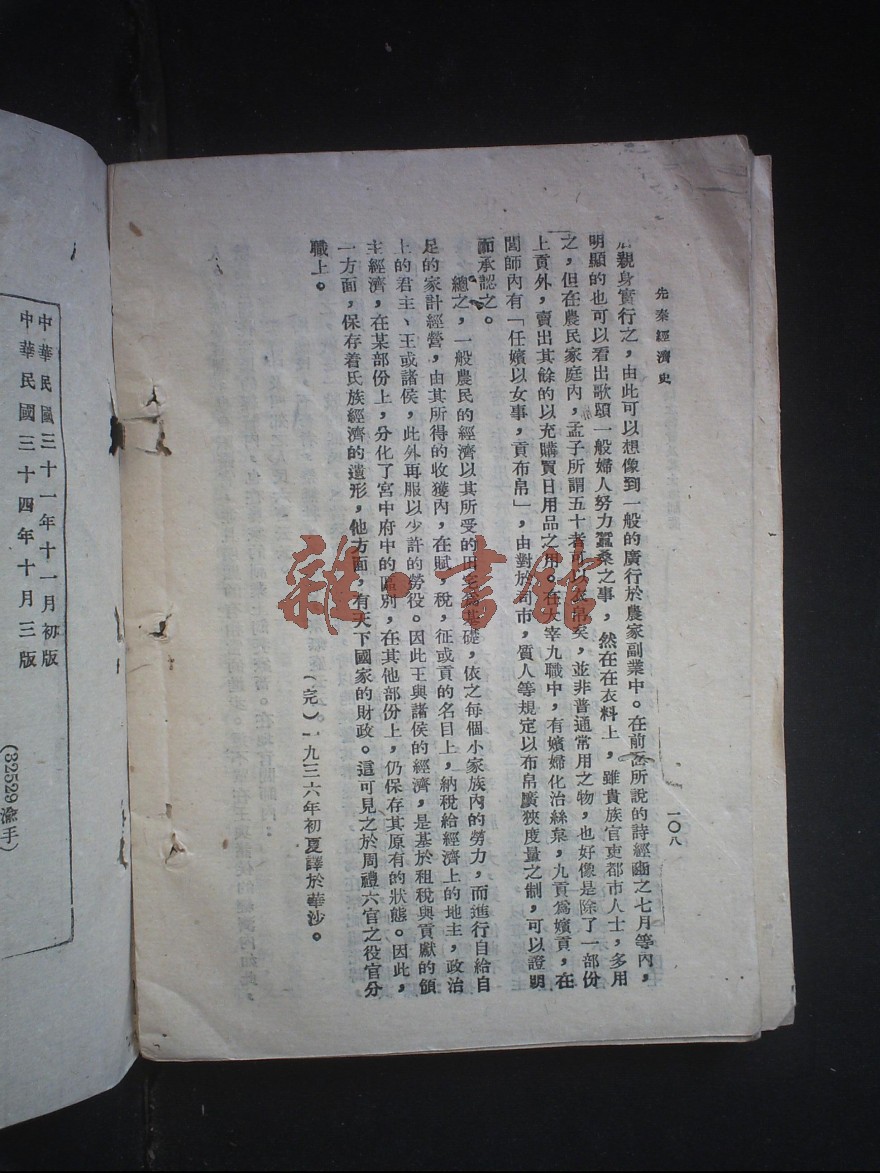 先秦經濟史
一〇八
親身實行之,由此可以想像到一般的廣行於農家副業中。在前所說的詩經豳之七月等內,
明顯的也可以看出歌頭一般婦人努力蠶桑之事,然在在衣料上,雖貴族官吏都市人士,多用
之,但在農民家庭內,孟子所謂五十者可以衣帛矣,並非普通常用之物,也好像是除了一部份
上貢外,賣出其餘的以充購買日用品之用。在大宰九職中,有嬪婦化治絲枲,九貢爲嬪貢,在
閭師內有「任嬪以女事,貢布帛」,由對於司市,質人等規定以布帛廣狹度量之制,可以證明
而承認之。
總之,一般農民的經濟以其所受的田宅爲基礎,依之每個小家族內的勞力,而進行自給自
足的家計經營,由其所得的收獲內,在賦,稅,征或貢的名目上,納稅給經濟上的地主,政治
上的君主、王或諸侯,此外再服以少許的勞役。因此王與諸侯的經濟,是基於租稅與貢獻的領
主經濟,在某部份上,分化了宮中府中的區別,在其他部份上,仍保存其原有的狀態。因此,
一方面,保存着氏族經濟的遺形,他方面,有天下國家的財政。這可見之於周禮六官之役官分
職上。
(完)一九三六年初夏譯於華沙。
中華民國三十一年十一月初版
中華民國三十四年十月三版
(32529渝手)
雜·書館